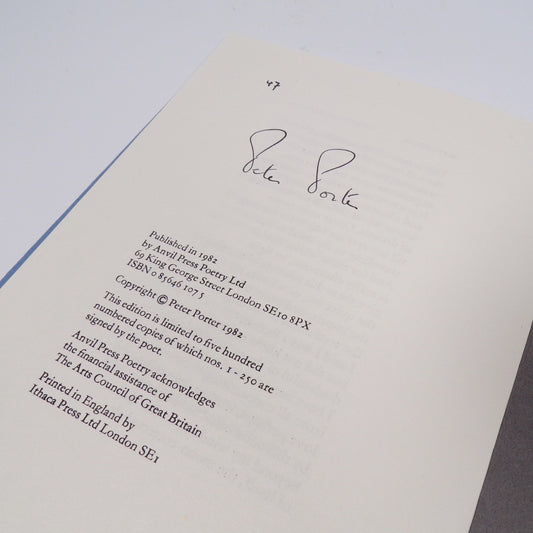 47
Peter Porter
Published in 1982
by Anvil Press Poetry Ltd
69 King George Street London SE10 8PX
ISBN 0 85646 107 5
Copyright © Peter Porter 1982
This edition is limited to five hundred
numbered copies of which nos. 1 - 250 are
signed by the poet.
Anvil Press Poetry acknowledges
the financial assistance of
The Arts Council of Great Britain
Printed in England by
Ithaca Press Ltd London SE1